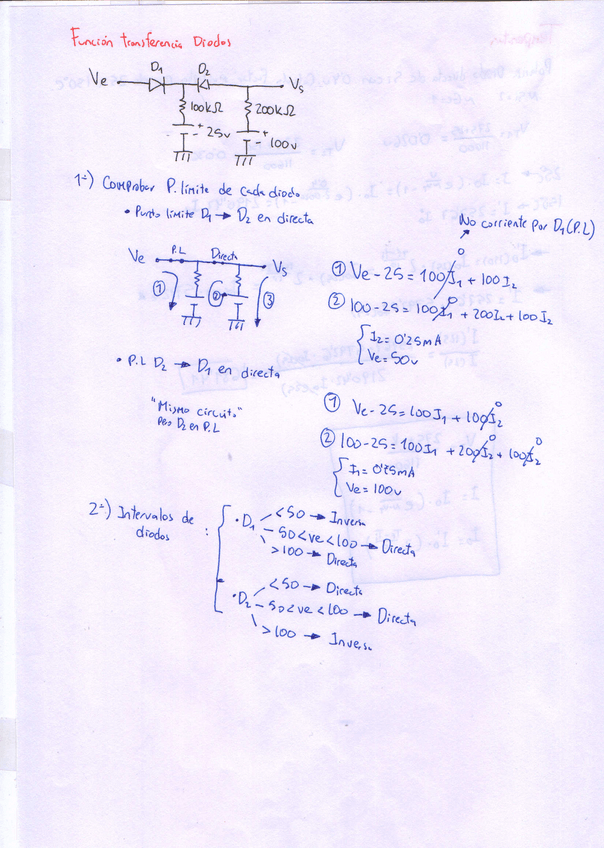 Función transferencia Diodos
D1 D2
Ve Vs
100kΩ 200kΩ
+ 25v + 100v
- -
1º) Comprobar P. límite de cada diodo
• Punto límite D1 → D2 en directa
No corriente por D1 (P.L)
Ve P.L Directa Vs
1 2 3
① Ve - 25 = 100I1 + 100I2
0
② 100 - 25 = 100I1 + 200I2 + 100I2
0
I2 = 0'25mA
Ve = 50v
• P.L D2 → D1 en directa
"Mismo circuito"
pero D2 en P.L
① Ve - 25 = 100I1 + 100I2
0
② 100 - 25 = 100I1 + 200I2 + 100I2
0 0
I1 = 0'75mA
Ve = 100v
2º) Intervalos de
diodos :
• D1 < 50 → Inversa
50 < ve < 100 → Directa
> 100 → Directa
• D2 < 50 → Directa
50 < ve < 100 → Directa
> 100 → Inversa